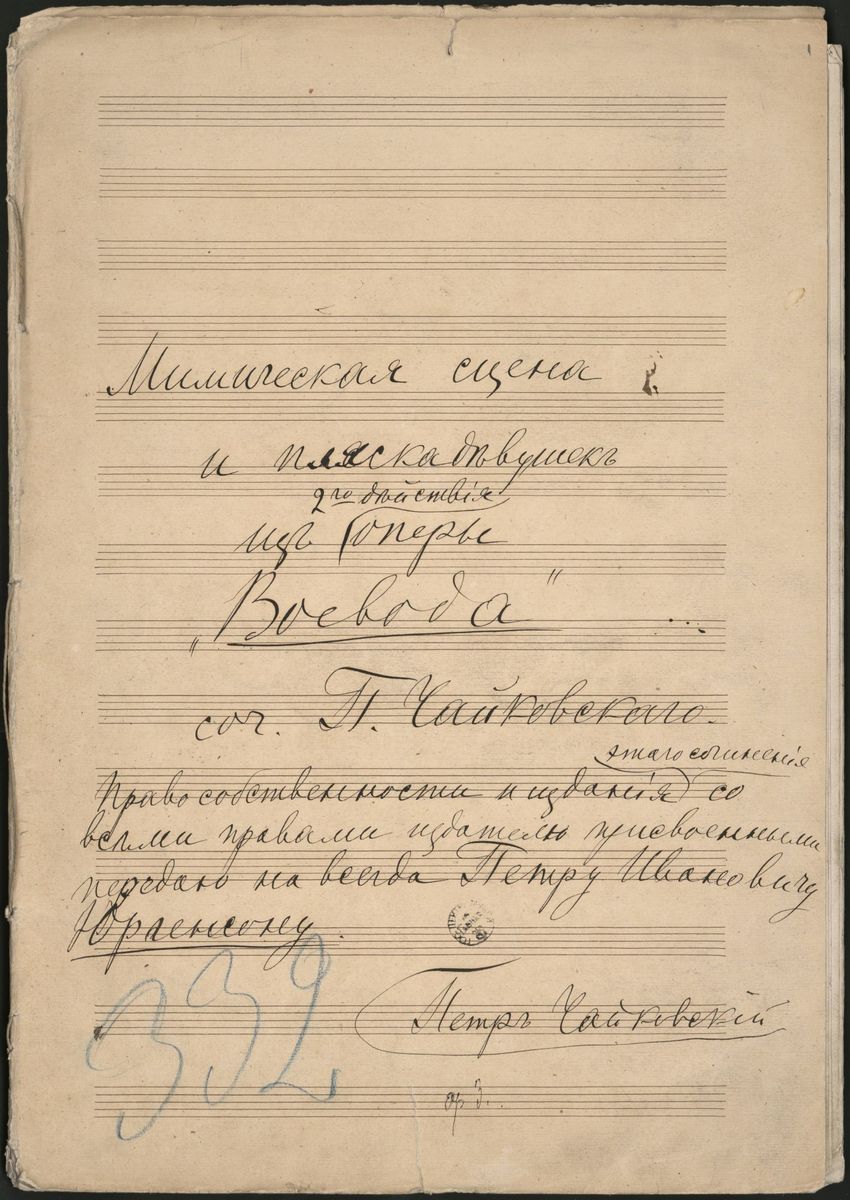 1
Мимическая сцена
и пляска дѣвушекъ
2го дѣйствія
изъ оперы
„Воевода"
соч. П. Чайковскаго.
этаго сочиненія
Право собственности и изданія со
всѣми правами издателю присвоенными
передаю на всегда Петру Ивановичу
Юргенсону.
Петръ Чайковскій
332
ор 3.